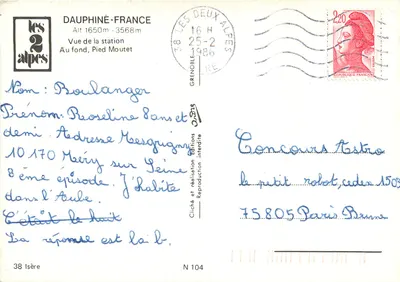 les
2
alpes
DAUPHINÉ-FRANCE
Alt 1650m - 3568m
Vue de la station
Au fond, Pied Moutet
38 LES DEUX ALPES
16 H
25-2
1986
2,20
Nom : Boulanger
Prénom : Roseline 8 ans et
demi. Adresse Mesgrigny
10 170 Méry sur Seine
8ème épisode. J'habite
dans l'Aube.
C'était le haut
La réponse est la b.
Cliché et réalisation Editions
Reproduction interdite
GRENOBLE
Concours Astro
le petit robot, cedex 1509
75805 Paris Brune
38 Isère
N 104